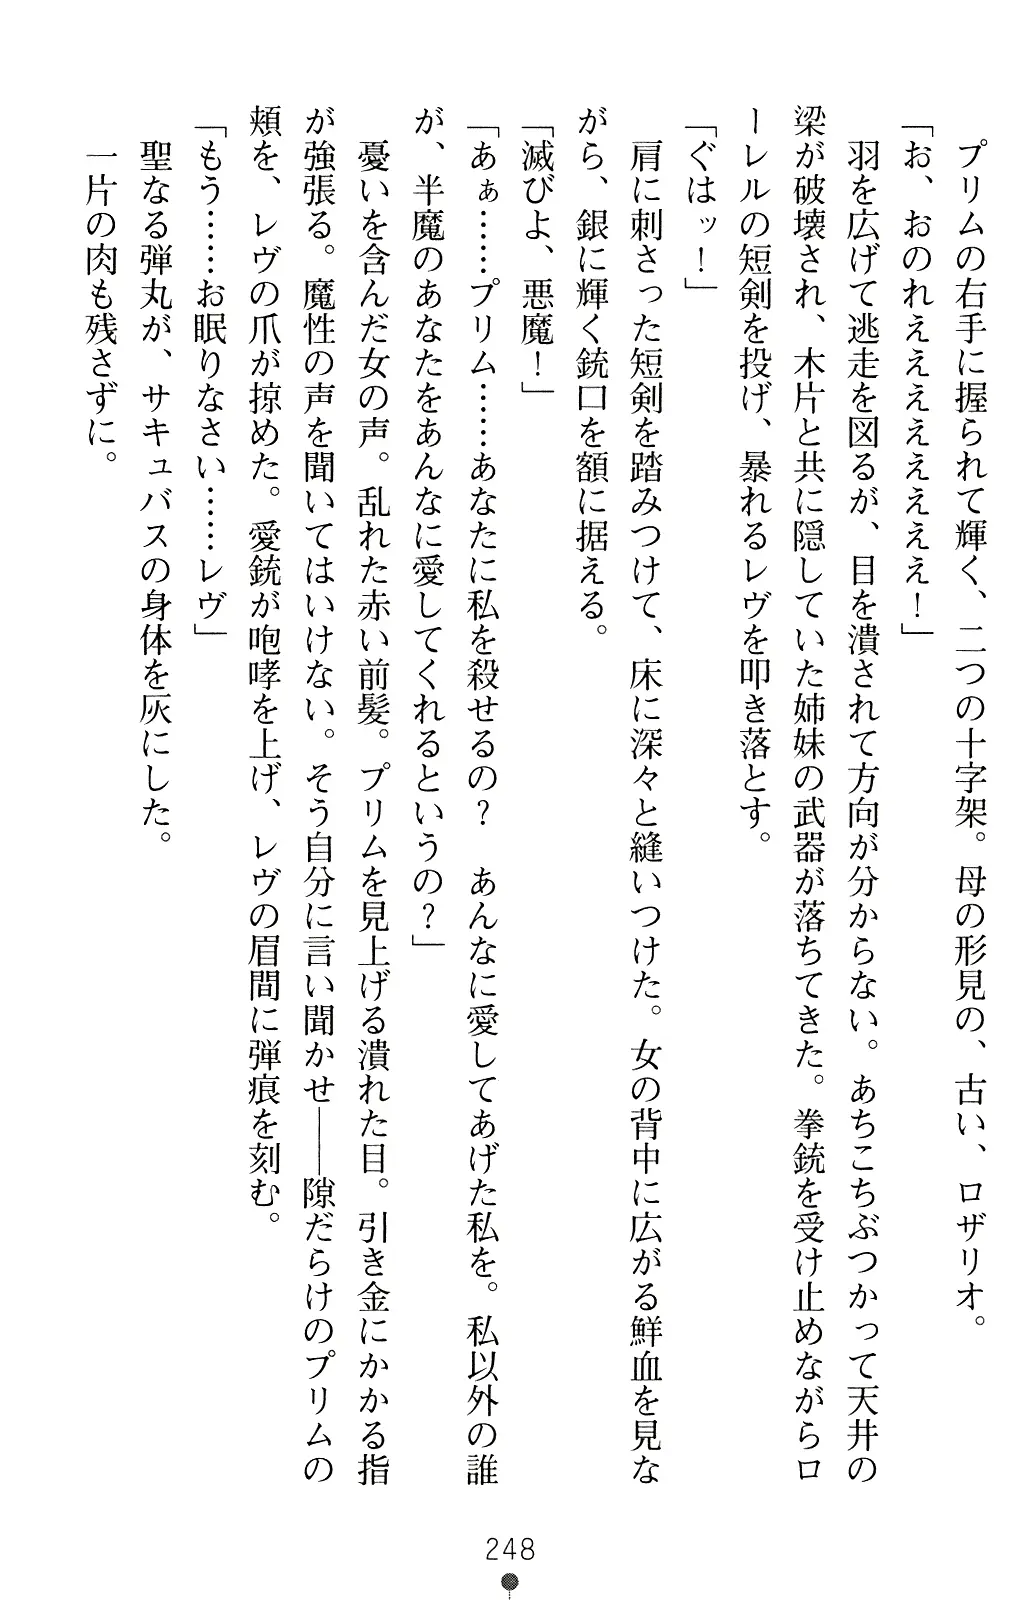 プリムの右手に握られて輝く、二つの十字架。母の形見の、古い、ロザリオ。
「お、おのれぇえぇえええええ！」
羽を広げて逃走を図るが、目を潰されて方向が分からない。あちこちぶつかって天井の
梁が破壊され、木片と共に隠していた姉妹の武器が落ちてきた。拳銃を受け止めながらロ
ーレルの短剣を投げ、暴れるレヴを叩き落とす。
「ぐはッ！」
肩に刺さった短剣を踏みつけて、床に深々と縫いつけた。女の背中に広がる鮮血を見な
がら、銀に輝く銃口を額に据える。
「滅びよ、悪魔！」
「あぁ……プリム……あなたに私を殺せるの？　あんなに愛してあげた私を。私以外の誰
が、半魔のあなたをあんなに愛してくれるというの？」
憂いを含んだ女の声。乱れた赤い前髪。プリムを見上げる潰れた目。引き金にかかる指
が強張る。魔性の声を聞いてはいけない。そう自分に言い聞かせ――隙だらけのプリムの
頬を、レヴの爪が掠めた。愛銃が咆哮を上げ、レヴの眉間に弾痕を刻む。
「もう……お眠りなさい……レヴ」
聖なる弾丸が、サキュバスの身体を灰にした。
一片の肉も残さずに。
248